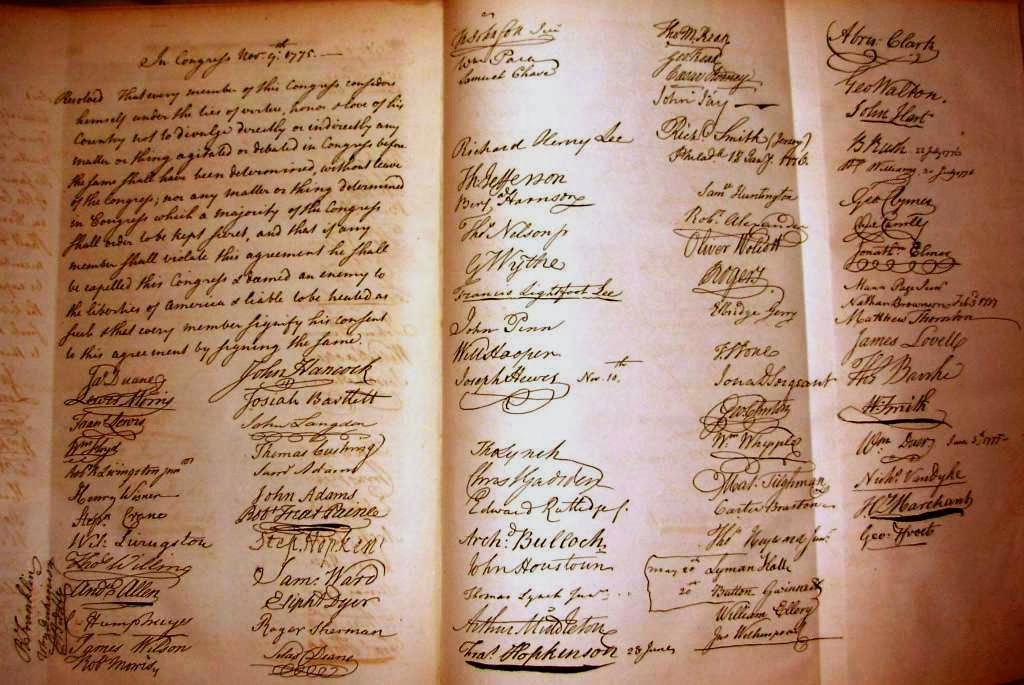 In Congress Nov. 9th 1775. —
Resolved That every member of this Congress considers
himself under the ties of virtue, honor & love of his
Country not to divulge directly or indirectly any
matter or thing agitated or debated in Congress before
the same shall have been determined, without leave
of the Congress; nor any matter or thing determined
in Congress which a majority of the Congress
shall order to be kept secret, and that if any
member shall violate this agreement he shall
be expelled this Congress & deemed an enemy to
the liberties of America & liable to be treated as
such & that every member signify his consent
to this agreement by signing the same.
Jas Duane
Lewis Morris
Fran Lewis
Wm Floyd
Robt R Livingston junr
Henry Wisner
Wil: Livingston
Thos Willing
And Allen
C Humphreys
James Wilson
Robt Morris
B Franklin
John Hancock
Josiah Bartlett
John Langdon
Thomas Cushing
Saml Adams
John Adams
Robt Treat Paine
Step Hopkins
Sam: Ward
Eliphet Dyer
Roger Sherman
Silas Deane
Wm Paca
Samuel Chase
Richard Henry Lee
Th Jefferson
Benj Harrison
Thos Nelson jr
G Wythe
Francis Lightfoot Lee
John Penn
Will Hooper
Joseph Hewes Nov. 10th
Tho Lynch
Christ Gadsden
Edward Rutledge
Archd Bulloch
John Houstoun
Thomas Lynch Junr
Arthur Middleton
Fras Hopkinson 28 June
Tho M:Kean
Geo Read
Caesar Rodney
John Jay
Richd Smith (Jersey)
Saml Huntington
Robt Alexander
Oliver Wolcott
Rogers
Elbridge Gerry
T Stone
Jona D Sergeant
Geo Clinton
Wm Whipple
Mat. Tilghman
Carter Braxton
Thos Heyward Junr
May 20th Lyman Hall
20th Button Gwinnett
William Ellery
Jno Witherspoon
Abra: Clark
Geo Walton.
John Hart
B Rush 22 July 1776
Geo Clymer
Jonathn Elmer
Mann Page Junr
Nathan Brownson Feb. 3 1777
Matthew Thornton
James Lovell
Thos Burke
W. Smith
Wm Duer June 5th 1777
Nichs Vandyke
H. Marchant